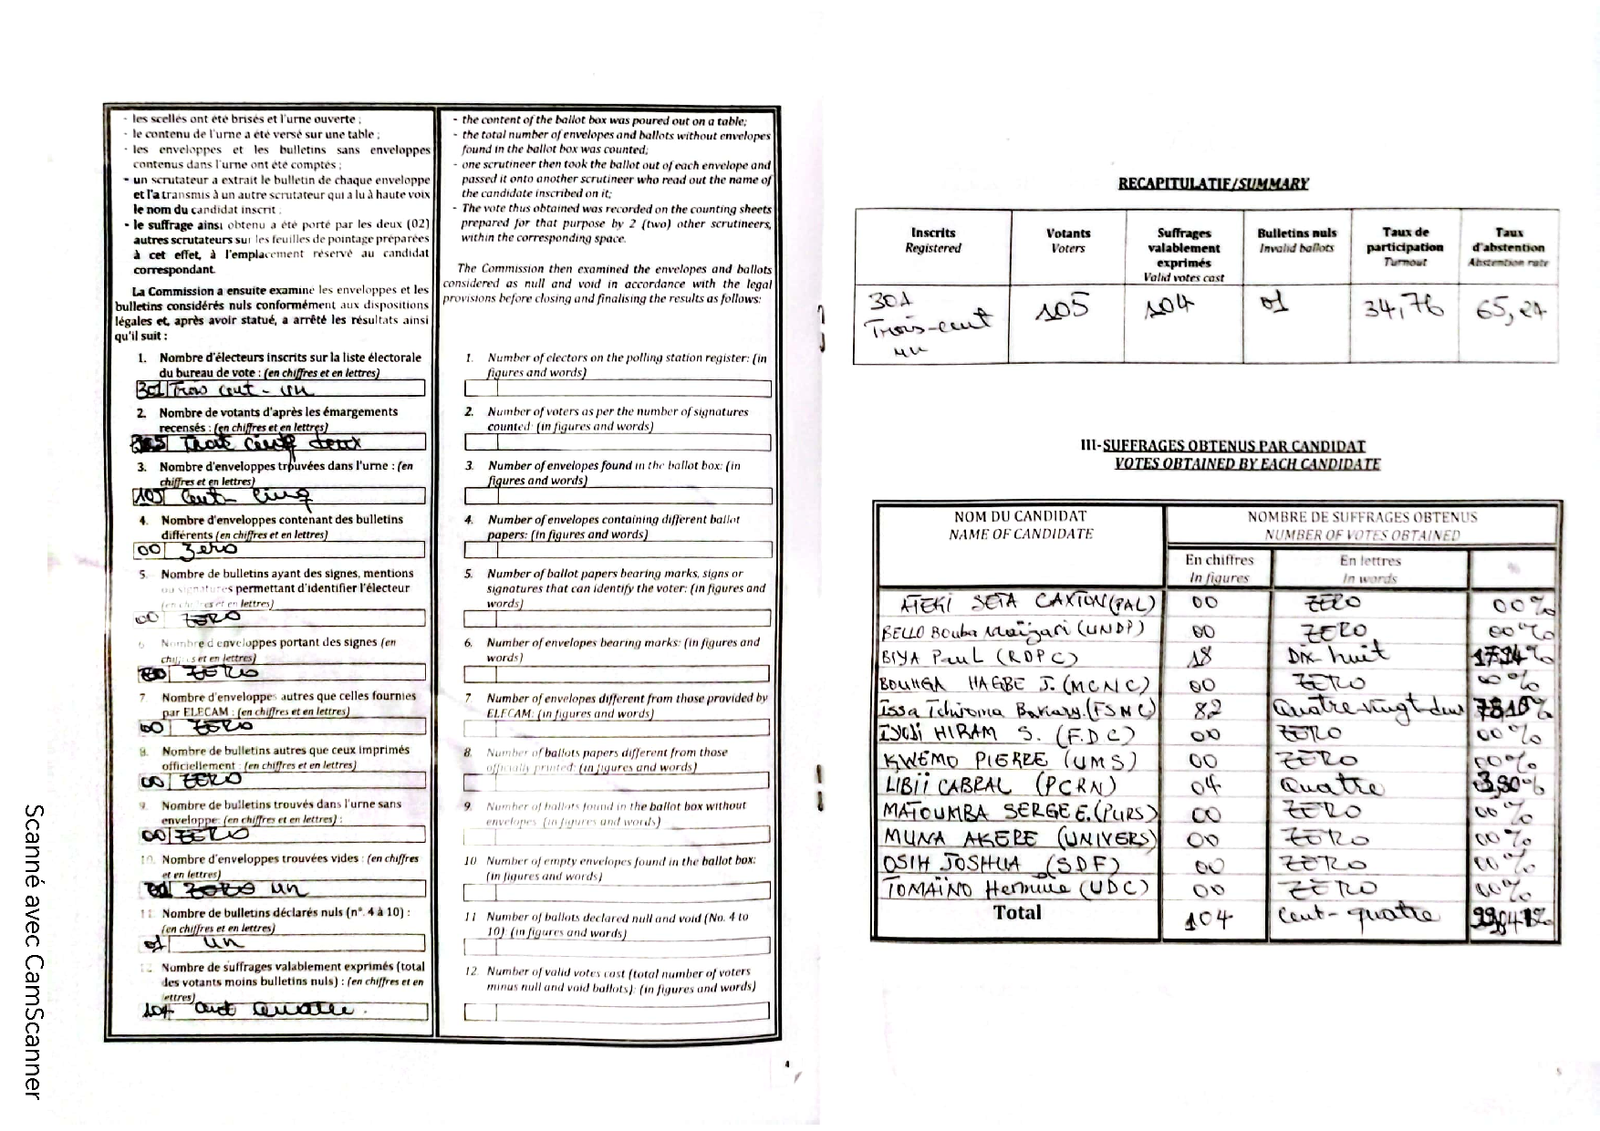 - les scellés ont été brisés et l'urne ouverte ;
- le contenu de l'urne a été versé sur une table ;
- les enveloppes et les bulletins sans enveloppes
contenus dans l'urne ont été comptés ;
- un scrutateur a extrait le bulletin de chaque enveloppe
et l'a transmis à un autre scrutateur qui a lu à haute voix
le nom du candidat inscrit ;
- le suffrage ainsi obtenu a été porté par les deux (02)
autres scrutateurs sur les feuilles de pointage préparées
à cet effet, à l'emplacement réservé au candidat
correspondant.
La Commission a ensuite examiné les enveloppes et les
bulletins considérés nuls conformément aux dispositions
légales et, après avoir statué, a arrêté les résultats ainsi
qu'il suit :
1. Nombre d'électeurs inscrits sur la liste électorale
du bureau de vote : (en chiffres et en lettres)
301 Trois cent - un
2. Nombre de votants d'après les émargements
recensés : (en chiffres et en lettres)
3. Nombre d'enveloppes trouvées dans l'urne : (en
chiffres et en lettres)
105 Cent - Cinq
4. Nombre d'enveloppes contenant des bulletins
différents (en chiffres et en lettres)
00 Zero
5. Nombre de bulletins ayant des signes, mentions
ou signatures permettant d'identifier l'électeur
(en chiffres et en lettres)
00 ZERO
6. Nombre d'enveloppes portant des signes (en
chiffres et en lettres)
00 ZERO
7 Nombre d'enveloppes autres que celles fournies
par ELECAM : (en chiffres et en lettres)
00 ZERO
8. Nombre de bulletins autres que ceux imprimés
officiellement : (en chiffres et en lettres)
00 ZERO
9. Nombre de bulletins trouvés dans l'urne sans
enveloppe: (en chiffres et en lettres) :
00 ZERO
10. Nombre d'enveloppes trouvées vides : (en chiffres
et en lettres)
ZERO un
11. Nombre de bulletins déclarés nuls (n°. 4 à 10) :
(en chiffres et en lettres)
01 un
12. Nombre de suffrages valablement exprimés (total
des votants moins bulletins nuls) : (en chiffres et en
lettres)
104 Cent Quatre .
- the content of the ballot box was poured out on a table;
- the total number of envelopes and ballots without envelopes
found in the ballot box was counted;
- one scrutineer then took the ballot out of each envelope and
passed it onto another scrutineer who read out the name of
the candidate inscribed on it;
- The vote thus obtained was recorded on the counting sheets
prepared for that purpose by 2 (two) other scrutineers,
within the corresponding space.
The Commission then examined the envelopes and ballots
considered as null and void in accordance with the legal
provisions before closing and finalising the results as follows:
1. Number of electors on the polling station register: (in
figures and words)
2. Number of voters as per the number of signatures
counted: (in figures and words)
3. Number of envelopes found in the ballot box: (in
figures and words)
4. Number of envelopes containing different ballot
papers: (in figures and words)
5. Number of ballot papers bearing marks, signs or
signatures that can identify the voter: (in figures and
words)
6. Number of envelopes bearing marks: (in figures and
words)
7 Number of envelopes different from those provided by
ELECAM: (in figures and words)
8. Number of ballots papers different from those
officially printed: (in figures and words)
9. Number of ballots found in the ballot box without
envelopes (in figures and words)
10 Number of empty envelopes found in the ballot box:
(in figures and words)
11 Number of ballots declared null and void (No. 4 to
10) (in figures and words)
12. Number of valid votes cast (total number of voters
minus null and void ballots): (in figures and words)
4
RECAPITULATIF/SUMMARY
Inscrits Registered
Votants Voters
Suffrages valablement exprimés Valid votes cast
Bulletins nuls Invalid ballots
Taux de participation Turnout
Taux d'abstention Abstention rate
301 Trois-cent un
105
104
01
34,76
65,24
III-SUFFRAGES OBTENUS PAR CANDIDAT
VOTES OBTAINED BY EACH CANDIDATE
NOM DU CANDIDAT
NAME OF CANDIDATE
NOMBRE DE SUFFRAGES OBTENUS
NUMBER OF VOTES OBTAINED
En chiffres In figures
En lettres In words
%
ATEKI SETA CAXTON (PAL) 00 ZERO 00%
BELLO Bouba Maïgari (UNDP) 00 ZERO 00%
BIYA Paul (RDPC) 18 Dix-huit
BOUHGA HAGBE J. (MCNC) 00 ZERO 00%
Issa Tchiroma Bakary. (FSNC) 82 Quatre-vingt-deux
IYODI HIRAM S. (F.D.C) 00 ZERO 00%
KWEMO PIERRE (UMS) 00 ZERO 00%
LIBII CABRAL (PCRN) 04 Quatre
MATOUMBA SERGE E. (PURS) 00 ZERO 00%
MUNA AKERE (UNIVERS) 00 ZERO 00%
OSIH JOSHUA (SDF) 00 ZERO 00%
TOMAÏNO Hermine (UDC) 00 ZERO 00%
Total 104 Cent-quatre
5
Scanné avec CamScanner